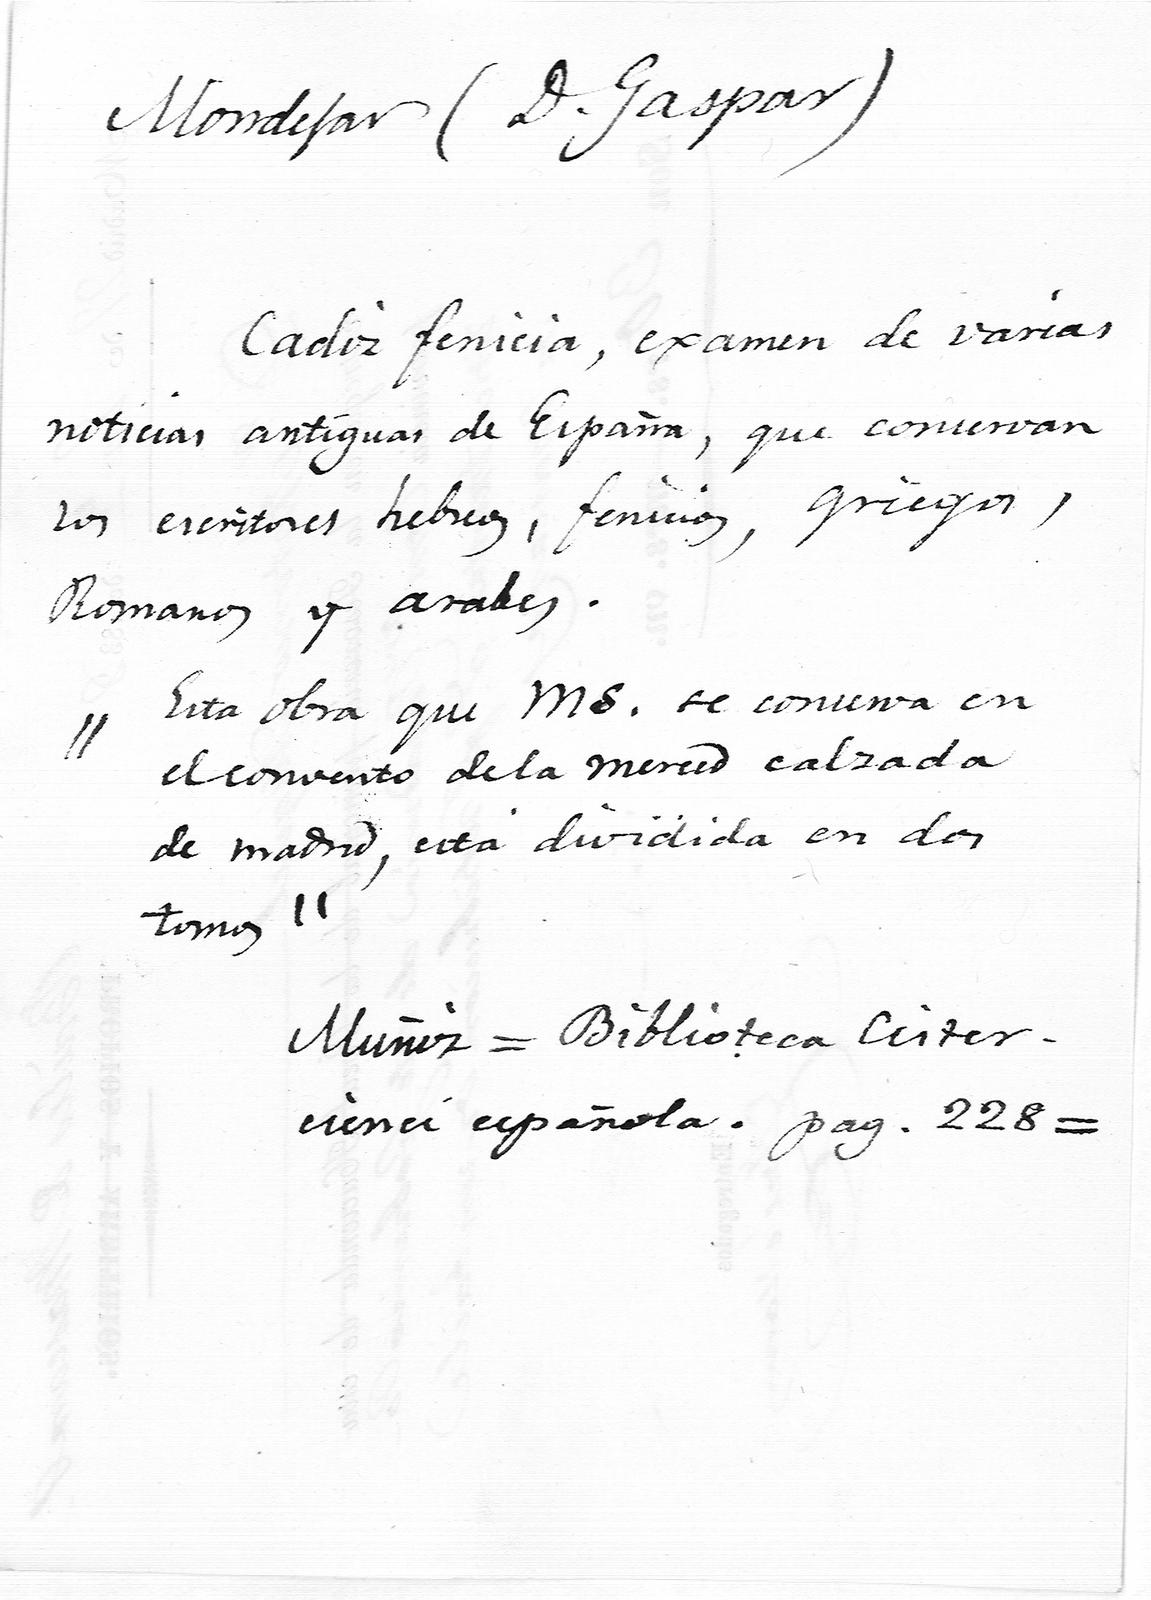 Mondejar ( D. Gaspar)
Cadiz fenicia, examen de varias
noticias antiguas de España, que conservan
los escritores hebreos, fenicios, griegos,
Romanos y arabes.
" Esta obra que MS. se conserva en
el convento de la merced calzada
de madrid, está dividida en dos
tomos "
Muñiz = Biblioteca Cister-
cienci española. pag. 228 =